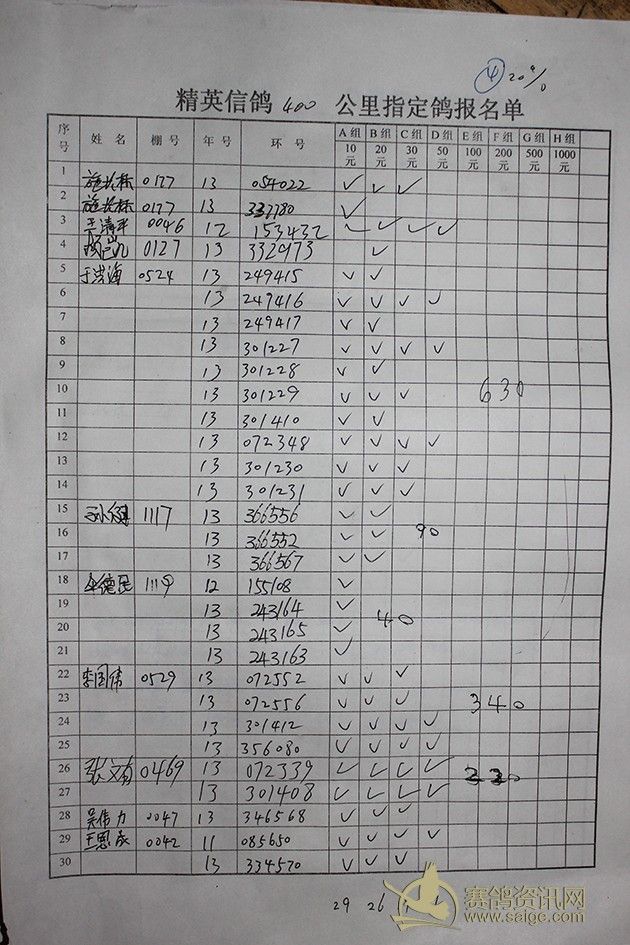 ④ 20%
精英信鸽 400 公里指定鸽报名单
序号 姓名 棚号 年号 环号 A组 10元 B组 20元 C组 30元 D组 50元 E组 100元 F组 200元 G组 500元 H组 1000元
1 施长林 0177 13 054022 ✓ ✓ ✓
2 施长林 0177 13 337780 ✓
3 王清平 0046 12 153432 ✓ ✓ ✓ ✓
4 0127 13 332973 ✓
5 于洪海 0524 13 249415 ✓ ✓
6 13 249416 ✓ ✓ ✓ ✓
7 13 249417 ✓ ✓
8 13 301227 ✓ ✓ ✓ ✓
9 13 301228 ✓ ✓
10 13 301229 ✓ ✓ ✓ 630
11 13 301410 ✓ ✓
12 13 072348 ✓ ✓ ✓ ✓
13 13 301230 ✓ ✓ ✓
14 13 301231 ✓ ✓ ✓
15 1117 13 366556 ✓ ✓
16 13 366552 ✓ ✓ 90
17 13 366567 ✓ ✓
18 1119 12 155108 ✓
19 13 243164 ✓ 40
20 13 243165 ✓
21 13 243163 ✓
22 李国伟 0529 13 072552 ✓ ✓ ✓
23 13 072556 ✓ ✓ ✓ 340
24 13 301412 ✓ ✓ ✓ ✓
25 13 356080 ✓ ✓ ✓ ✓
26 张文有 0469 13 072339 ✓ ✓ ✓ ✓ 220
27 13 301408 ✓ ✓ ✓ ✓
28 吴伟力 0047 13 346568 ✓ ✓ ✓
29 王恩成 0042 11 085650 ✓ ✓ ✓ ✓
30 13 334570 ✓ ✓ ✓
29 26
赛鸽资讯网
www.saige.com